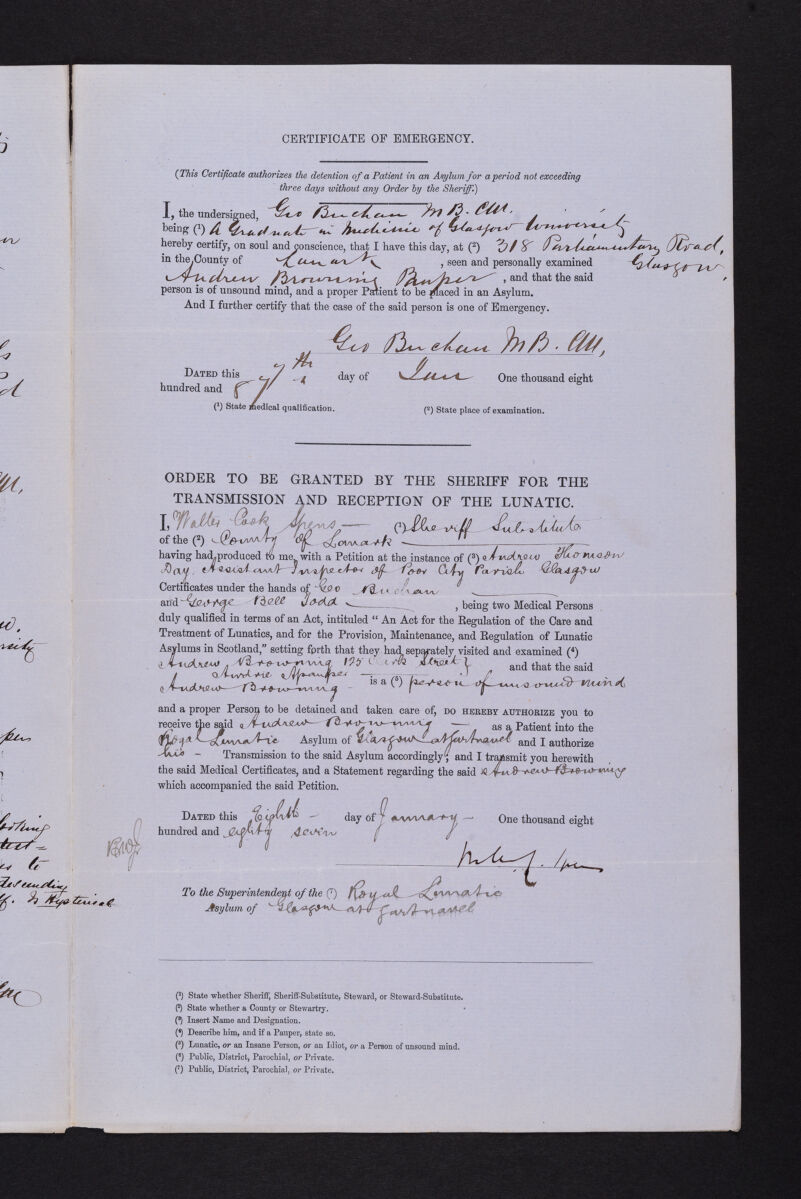 CERTIFICATE OF EMERGENCY.
(This Certificate authorizes the detention of a Patient in an Asylum for a period not exceeding
three days without any Order by the Sheriff.)
I, the undersigned, Geo Buchan M B. CM.
being (¹) A Graduate in Medicine of Glasgow University
hereby certify, on soul and conscience, that I have this day, at (²) 318 Parliamentary Road,
in the County of Lanark , seen and personally examined Glasgow,
Andrew Browning Pauper , and that the said
person is of unsound mind, and a proper Patient to be placed in an Asylum.
And I further certify that the case of the said person is one of Emergency.
Geo Buchan M B. CM,
DATED this 7th day of Jan One thousand eight
hundred and 87
(¹) State medical qualification. (²) State place of examination.
ORDER TO BE GRANTED BY THE SHERIFF FOR THE
TRANSMISSION AND RECEPTION OF THE LUNATIC.
I, Walter Cook Spens (¹) Sheriff Substitute
of the (²) County of Lanark
having had produced to me, with a Petition at the instance of (³) Andrew Thomson
Day Assistant Inspector of Poor City Parish Glasgow
Certificates under the hands of Geo Buchan
and George Bell Todd , being two Medical Persons
duly qualified in terms of an Act, intituled “ An Act for the Regulation of the Care and
Treatment of Lunatics, and for the Provision, Maintenance, and Regulation of Lunatic
Asylums in Scotland,” setting forth that they had separately visited and examined (⁴)
Andrew Browning 175 Street and that the said
Airdrie a pauper
Andrew Browning is a (⁵) person of unsound mind
and a proper Person to be detained and taken care of, DO HEREBY AUTHORIZE you to
receive the said Andrew Browning as a Patient into the
Royal Lunatic Asylum of Glasgow at Gartnavel and I authorize
his Transmission to the said Asylum accordingly; and I transmit you herewith
the said Medical Certificates, and a Statement regarding the said Andrew Browning
which accompanied the said Petition.
DATED this Eighth day of January One thousand eight
hundred and eighty seven
To the Superintendent of the (⁷) Royal Lunatic
Asylum of Glasgow at Gartnavel
(¹) State whether Sheriff, Sheriff-Substitute, Steward, or Steward-Substitute.
(²) State whether a County or Stewartry.
(³) Insert Name and Designation.
(⁴) Describe him, and if a Pauper, state so.
(⁵) Lunatic, or an Insane Person, or an Idiot, or a Person of unsound mind.
(⁶) Public, District, Parochial, or Private.
(⁷) Public, District, Parochial, or Private.